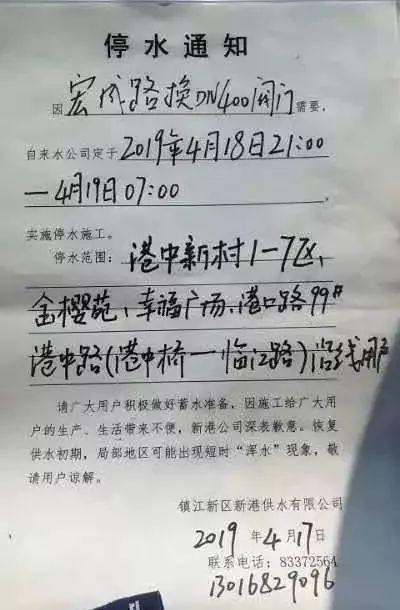 停水通知
因宏成路换DN400闸门需要,
自来水公司定于2019年4月18日21:00
—4月19日07:00,
实施停水施工。
停水范围:港中新村1—7区、
金樱苑、幸福广场、港口路99#
港中路(港中桥—临江路)沿线用户
请广大用户积极做好蓄水准备,因施工给广大用
户的生产、生活带来不便,新港公司深表歉意。恢复
供水初期,局部地区可能出现短时“浑水”现象,敬
请用户谅解。
镇江新区新港供水有限公司
2019年4月17日
联系电话:83372564
13016829096